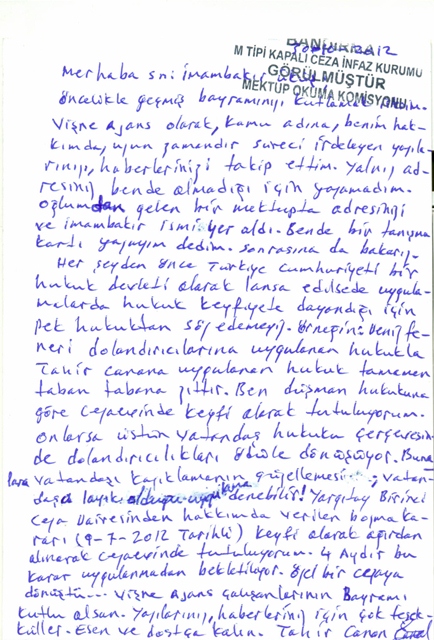 BANDIRMA
30-10-2012
M TİPİ KAPALI CEZA İNFAZ KURUMU
GÖRÜLMÜŞTÜR
MEKTUP OKUMA KOMİSYONU
Merhaba sni imambakır
Öncelikle geçmiş bayramınızı kutlamak
Vişne Ajans olarak, kamu adına, benim hak-
kımda, uzun zamandır süreci irdeleyen yazıla-
rınızı, haberlerinizi takip ettim. Yalnız ad-
resiniz bende olmadığı için yazamadım.
Oğlumdan gelen bir mektupta adresinizi
ve imambakır ismi yer aldı. Bende bir tanışma
kartı yazayım dedim. sonrasına da bakarız.
Her şeyden önce Türkiye Cumhuriyeti bir
hukuk devleti olarak lansa edilsede uygula-
malarda hukuk keyfiyete dayandığı için
pek hukuktan söz edemeyiz. Örneğin: Deniz fe-
neri dolandırıcılarına uygulanan hukukla
Tahir canana uygulanan hukuk tamamen
taban tabana zıttır. Ben düşman hukukuna
göre cezaevinde keyfi olarak tutuluyorum.
Onlarsa üstün vatandaş hukuku çerçevesin-
de dolandırıcılıkları ödüle dönüşüyor. Buna
lara vatandaşı kazıklamanın güzellemesi..., vatan-
daşa layık denebilir! Yargıtay Birinci
Ceza Dairesinden hakkımda verilen bozma ka-
rarı (9-7-2012 Tarihli) keyfi olarak ağırdan
alınarak cezaevinde tutuluyorum. 4 Aydır bu
karar uygulanmadan bekletiliyor. Özel bir cezaya
dönüştü... Vişne Ajans çalışanlarının Bayramı
kutlu olsun. Yazılarınız, haberleriniz için çok teşek-
küller. Esen ve dostça kalın. Tahir Canan